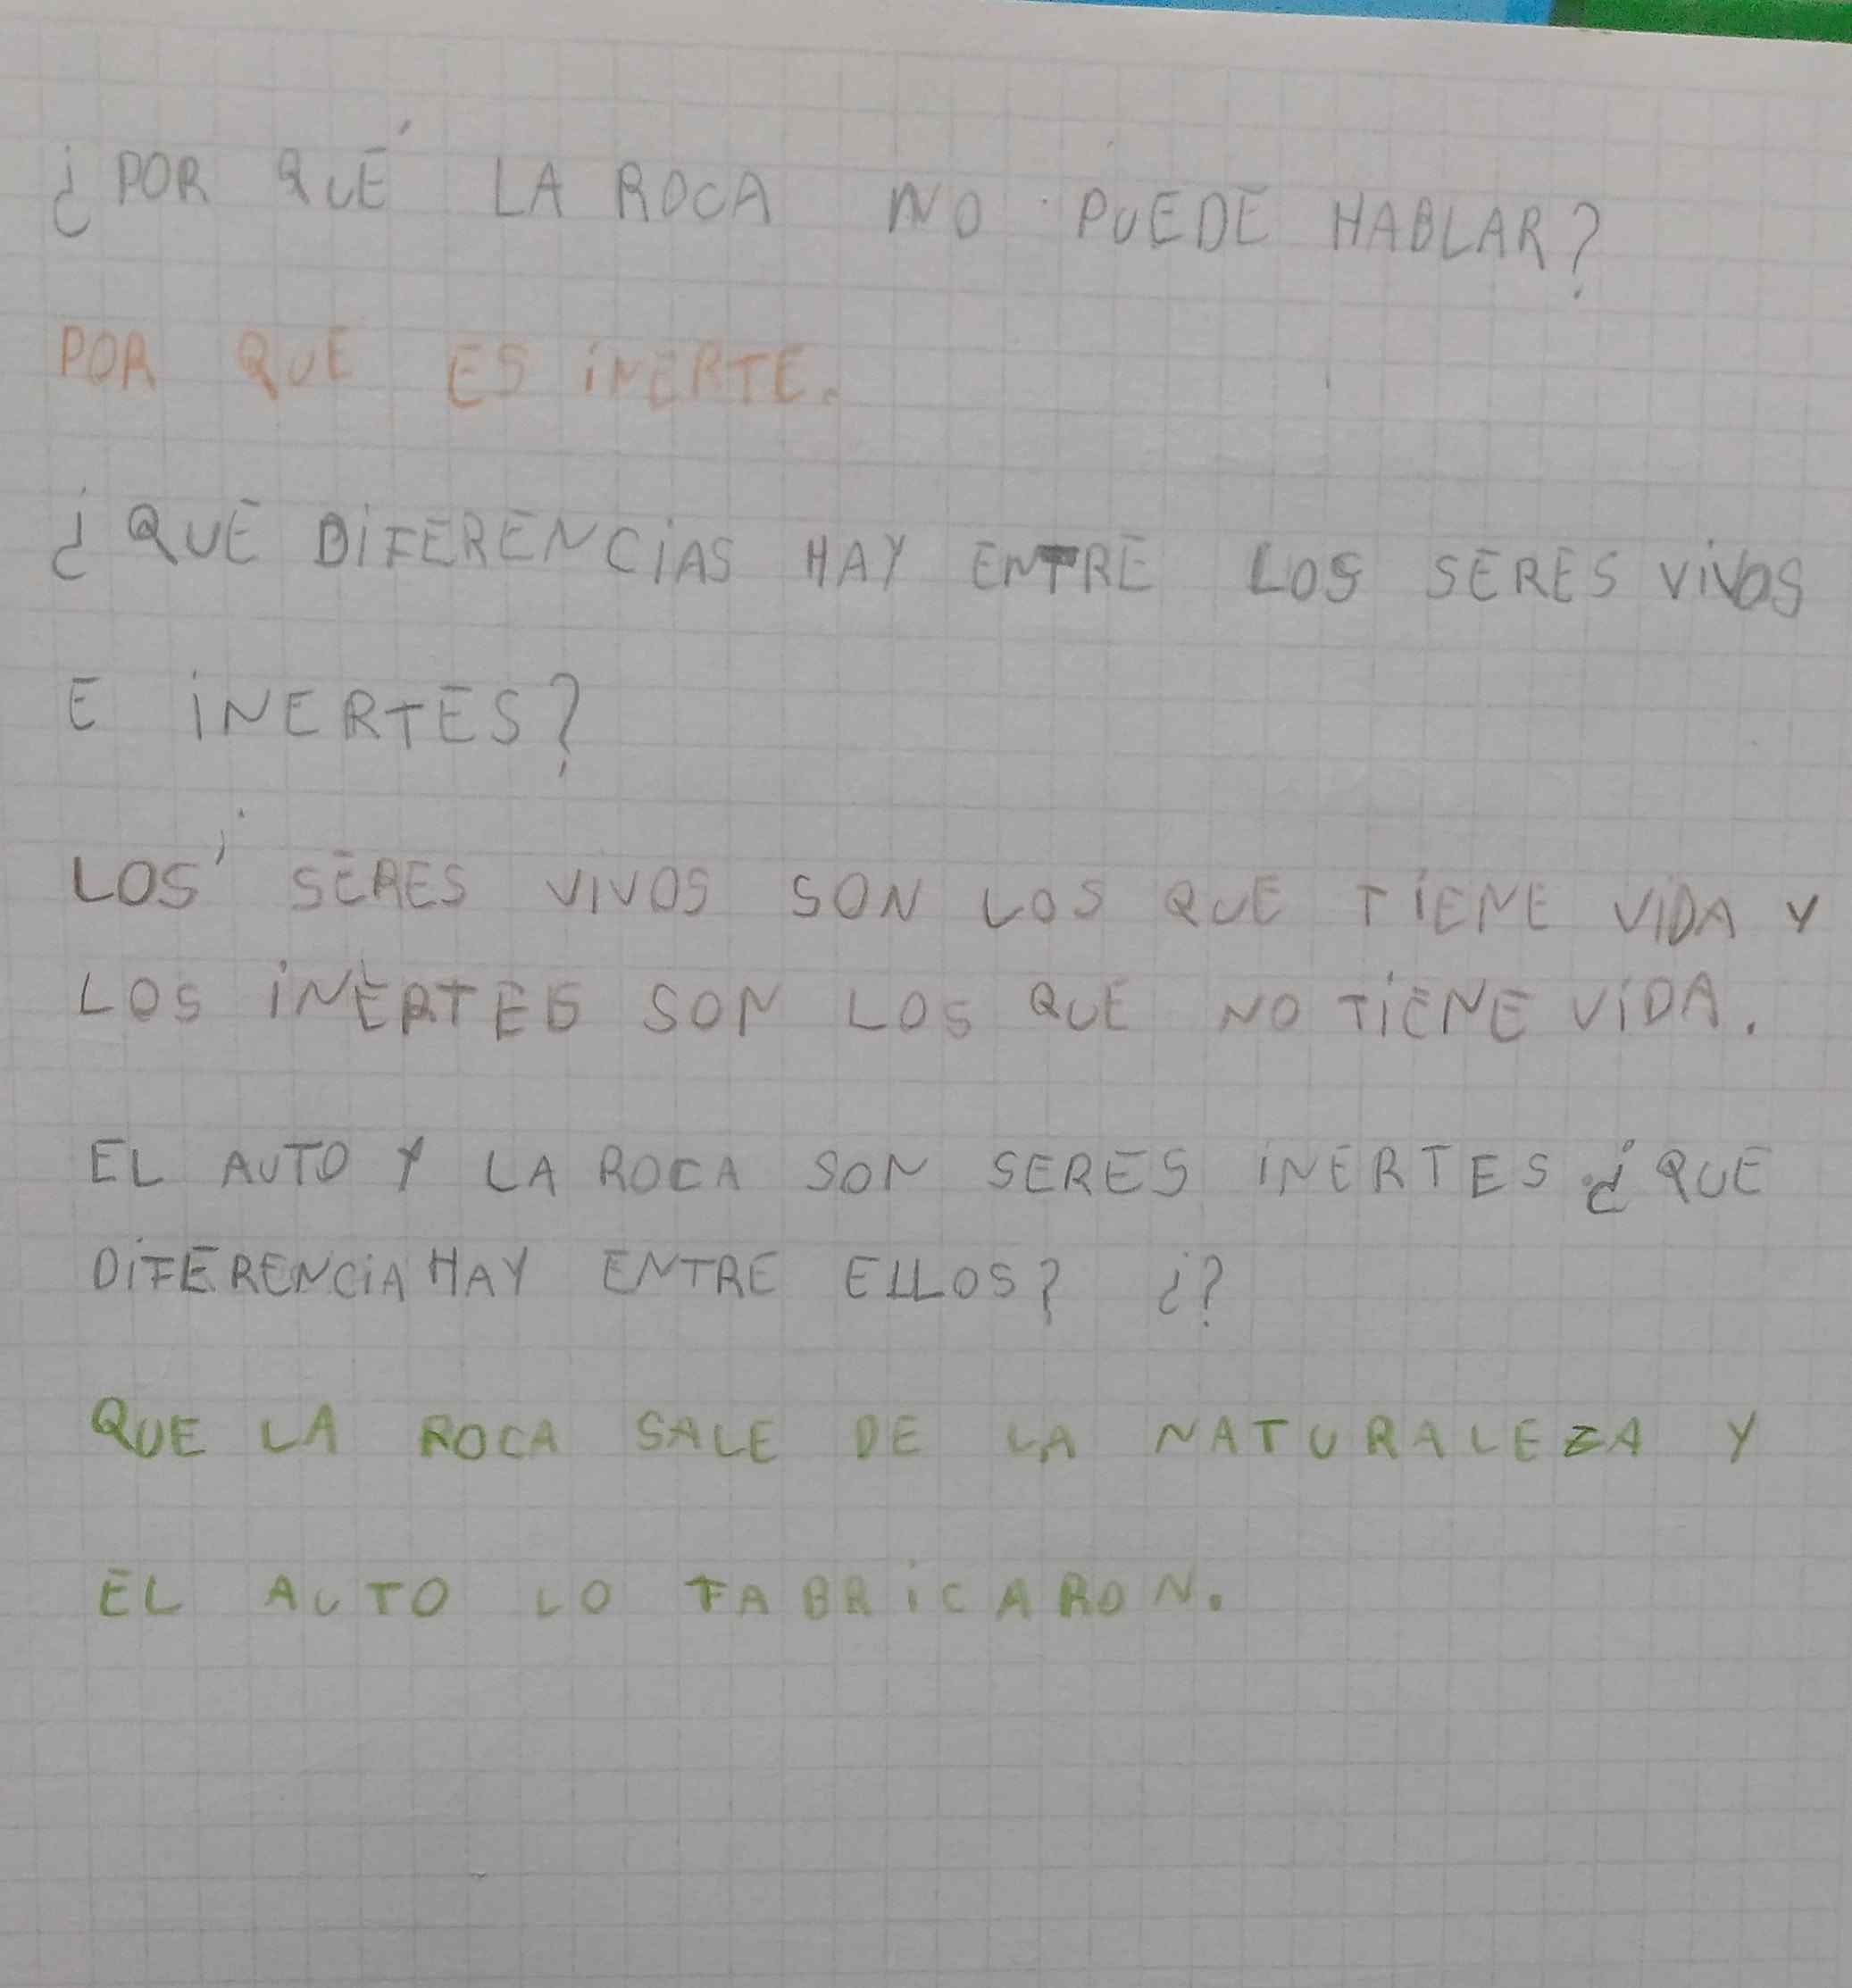 ¿POR QUÉ LA ROCA NO PUEDE HABLAR?
POR QUE ES INERTE.
¿QUE DIFERENCIAS HAY ENTRE LOS SERES VIVOS
E INERTES?
LOS SERES VIVOS SON LOS QUE TIENE VIDA Y
LOS INERTES SON LOS QUE NO TIENE VIDA.
EL AUTO Y LA ROCA SON SERES INERTES ¿QUE
DIFERENCIA HAY ENTRE ELLOS? ¿?
QUE LA ROCA SALE DE LA NATURALEZA Y
EL AUTO LO FABRICARON.